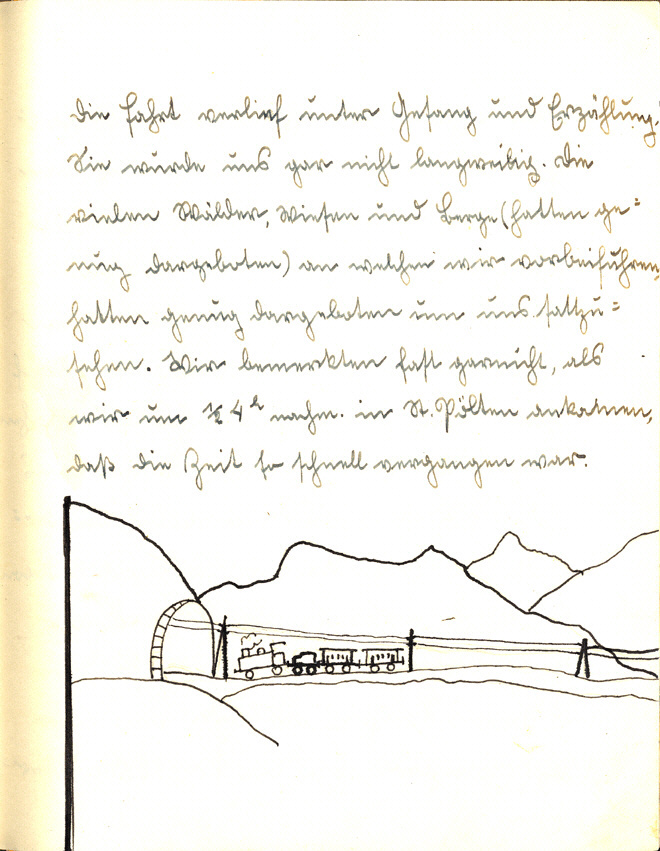 Die Fahrt verlief unter Gesang und Erzählung.
Sie wurde uns gar nicht langweilig. Die
vielen Wälder, Wiesen und Berge (hatten ge=
nug dargeboten) an welchen wir vorbeifuhren,
hatten genug dargeboten um uns sattzu=
sehen. Wir bemerkten fast garnicht, als
wir um ½ 4ʰ nachm. in St. Pölten ankamen,
daß die Zeit so schnell vergangen war.